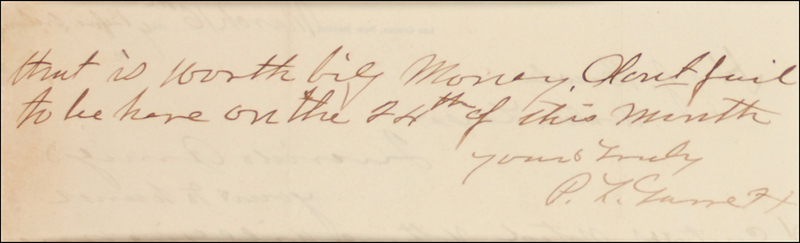 that is worth big Money, Dont fail
to be here on the 24th of this Month
yours truly
P. F. Garrett